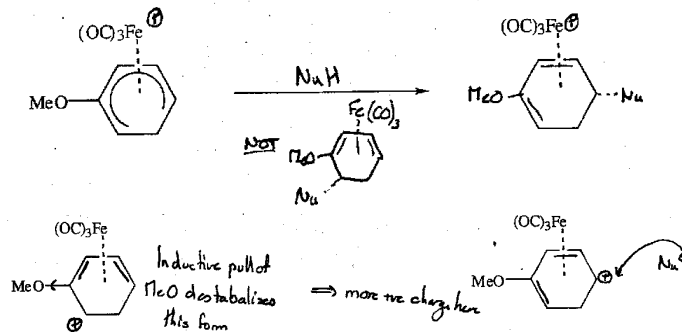 (OC)₃Fe ⊕
MeO
NuH
NOT
Fe(CO)₃
MeO
Nu
(OC)₃Fe⊕
MeO
Nu
(OC)₃Fe
MeO
⊕
Inductive pull of
MeO destabalizes
this form
⇒ more +ve charge here
(OC)₃Fe
MeO
⊕
Nu